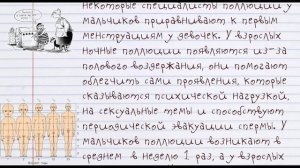 Некоторые специалисты поллюции у
мальчиков приравнивают к первым
менструациям у девочек. У взрослых
ночные поллюции появляются из-за
полового воздержания, они помогают
облегчить сами проявления, которые
сказываются психической нагрузкой,
на сексуальные темы и способствуют
периодической эвакуации спермы. У
мальчиков поллюции возникают в
среднем в неделю 1 раз, а у взрослых